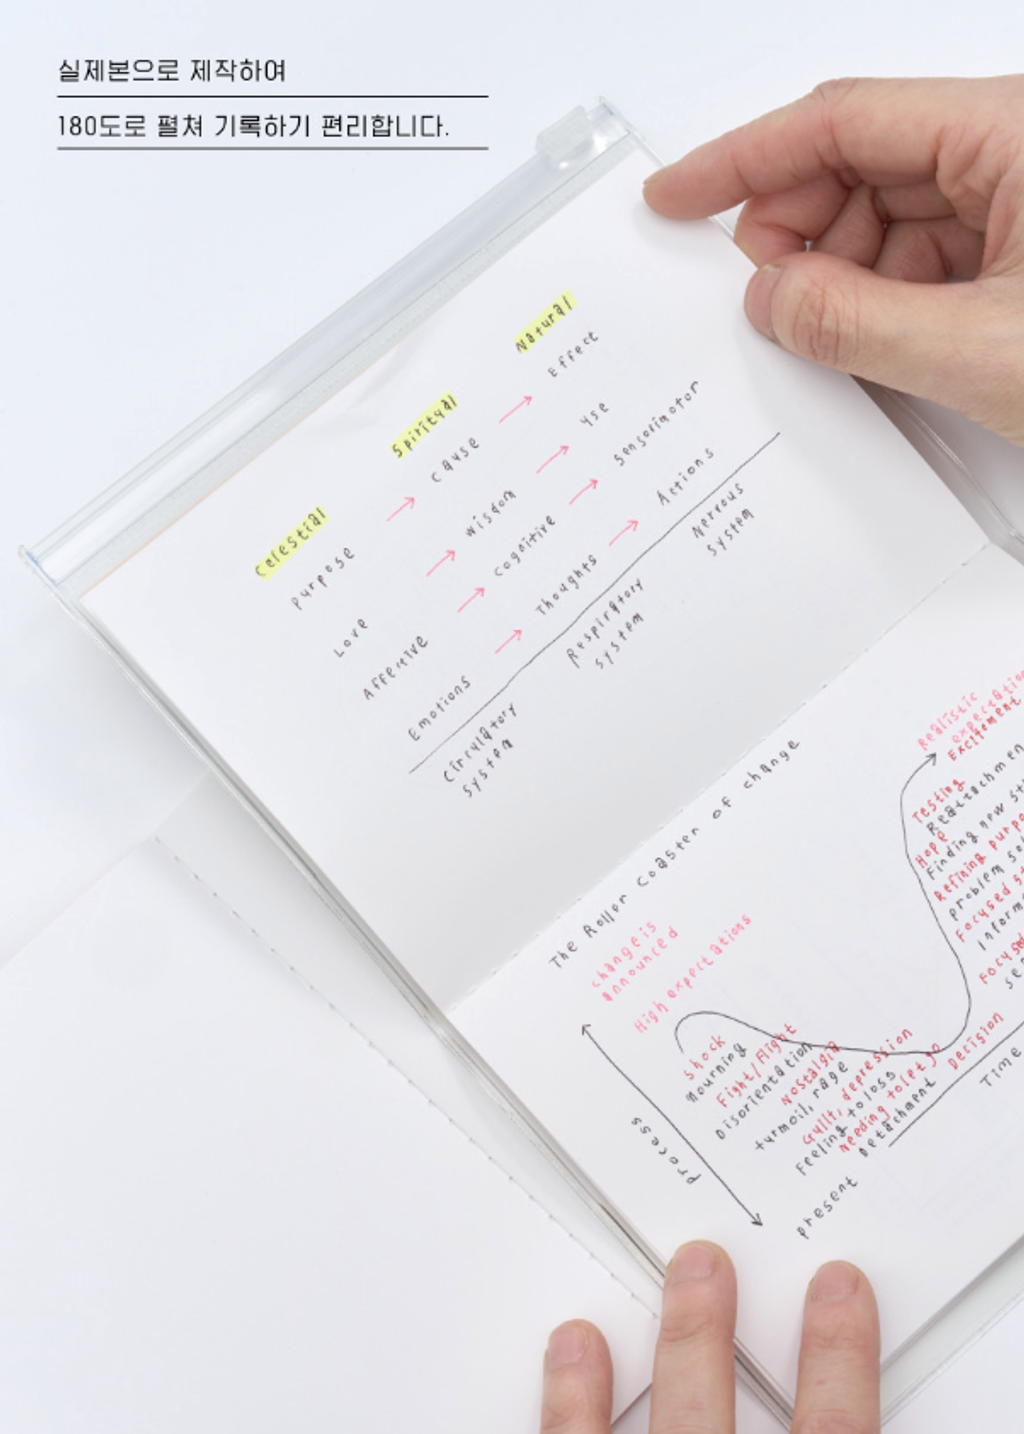 실제본으로 제작하여
180도로 펼쳐 기록하기 편리합니다.
Celestial Spiritual Natural
Purpose → Cause → Effect
Love → Wisdom → Use
Affective → Cognitive → Sensorimotor
Emotions → Thoughts → Actions
Circulatory system
Respiratory system
Nervous system
The Roller Coaster of change
change is
announced
High expectations
Realistic
expectation
Excitement
Testing
Hope
Finding new
Refining
problem
Focused
Shock
Mourning
Fight/Flight
Disorientation
Nostalgia
turmoil, rage
Guilt, depression
Feeling to loss
Needing to let go
Detachment
Decision
Process
present
Time